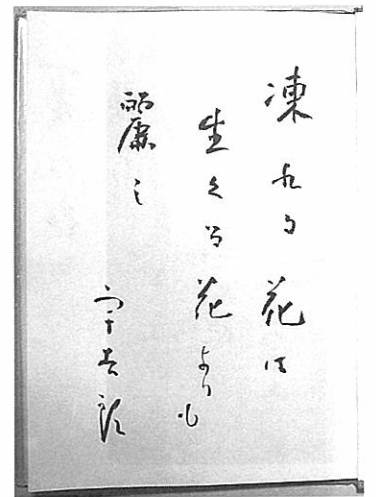 凍れる花は
生くる花よりも
麗し
宇吉郎